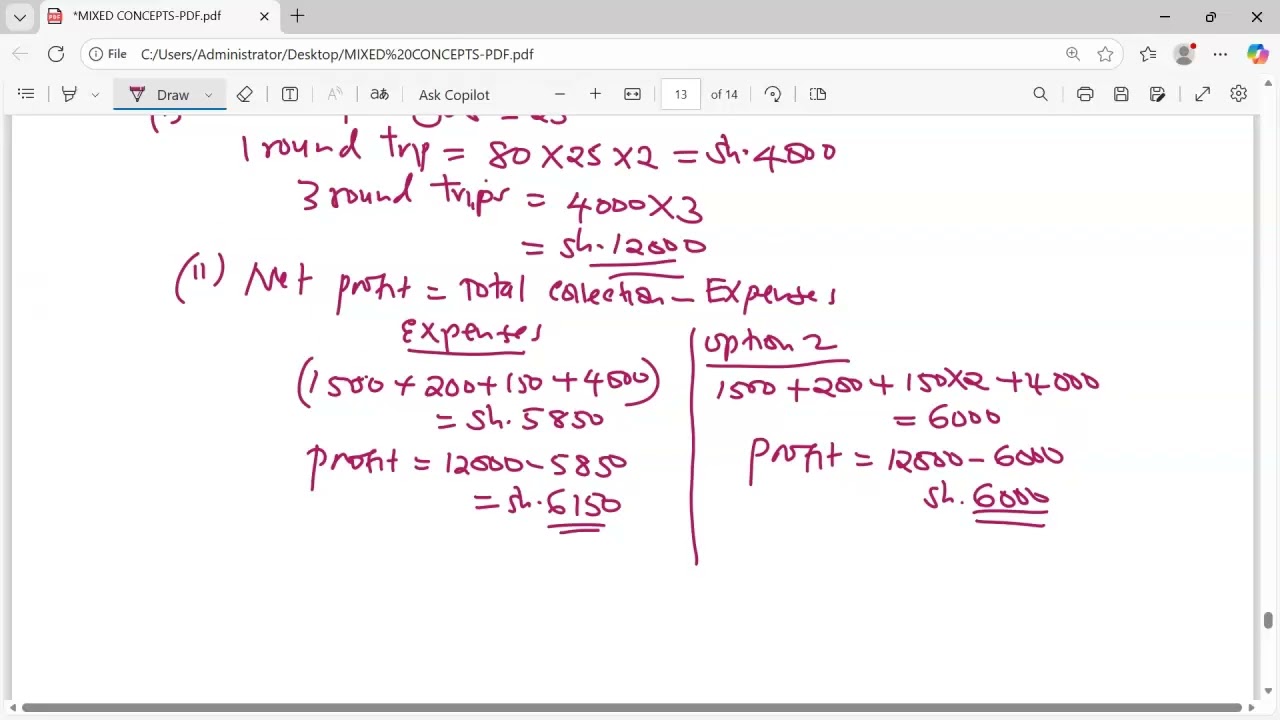 *MIXED CONCEPTS-PDF.pdf
File C:/Users/Administrator/Desktop/MIXED%20CONCEPTS-PDF.pdf
Draw Ask Copilot 13 of 14
1 round trip = 80 × 25 × 2 = Sh. 4000
3 round trips = 4000 × 3
= Sh. 12000
(ii) Net profit = Total collection - Expenses
Expenses
(1500 + 200 + 150 + 4000)
= Sh. 5850
profit = 12000 - 5850
= Sh. 6150
option 2
1500 + 200 + 150×2 + 4000
= 6000
profit = 12000 - 6000
Sh. 6000